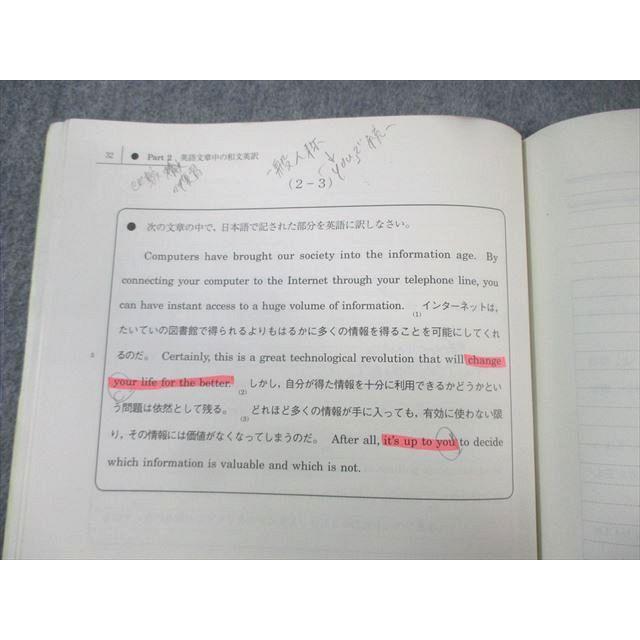 32 ● Part 2 英語文章中の和文英訳
一般人称 youで統一
(2－3)
● 次の文章の中で，日本語で記された部分を英語に訳しなさい。
Computers have brought our society into the information age. By
connecting your computer to the Internet through your telephone line, you
can have instant access to a huge volume of information. (1)インターネットは，
たいていの図書館で得られるよりもはるかに多くの情報を得ることを可能にしてくれ
5 るのだ。 Certainly, this is a great technological revolution that will change
your life for the better. (2)しかし，自分が得た情報を十分に利用できるかどうかとい
う問題は依然として残る。 (3)どれほど多くの情報が手に入っても，有効に使わない限
り，その情報には価値がなくなってしまうのだ。 After all, it's up to you to decide
which information is valuable and which is not.